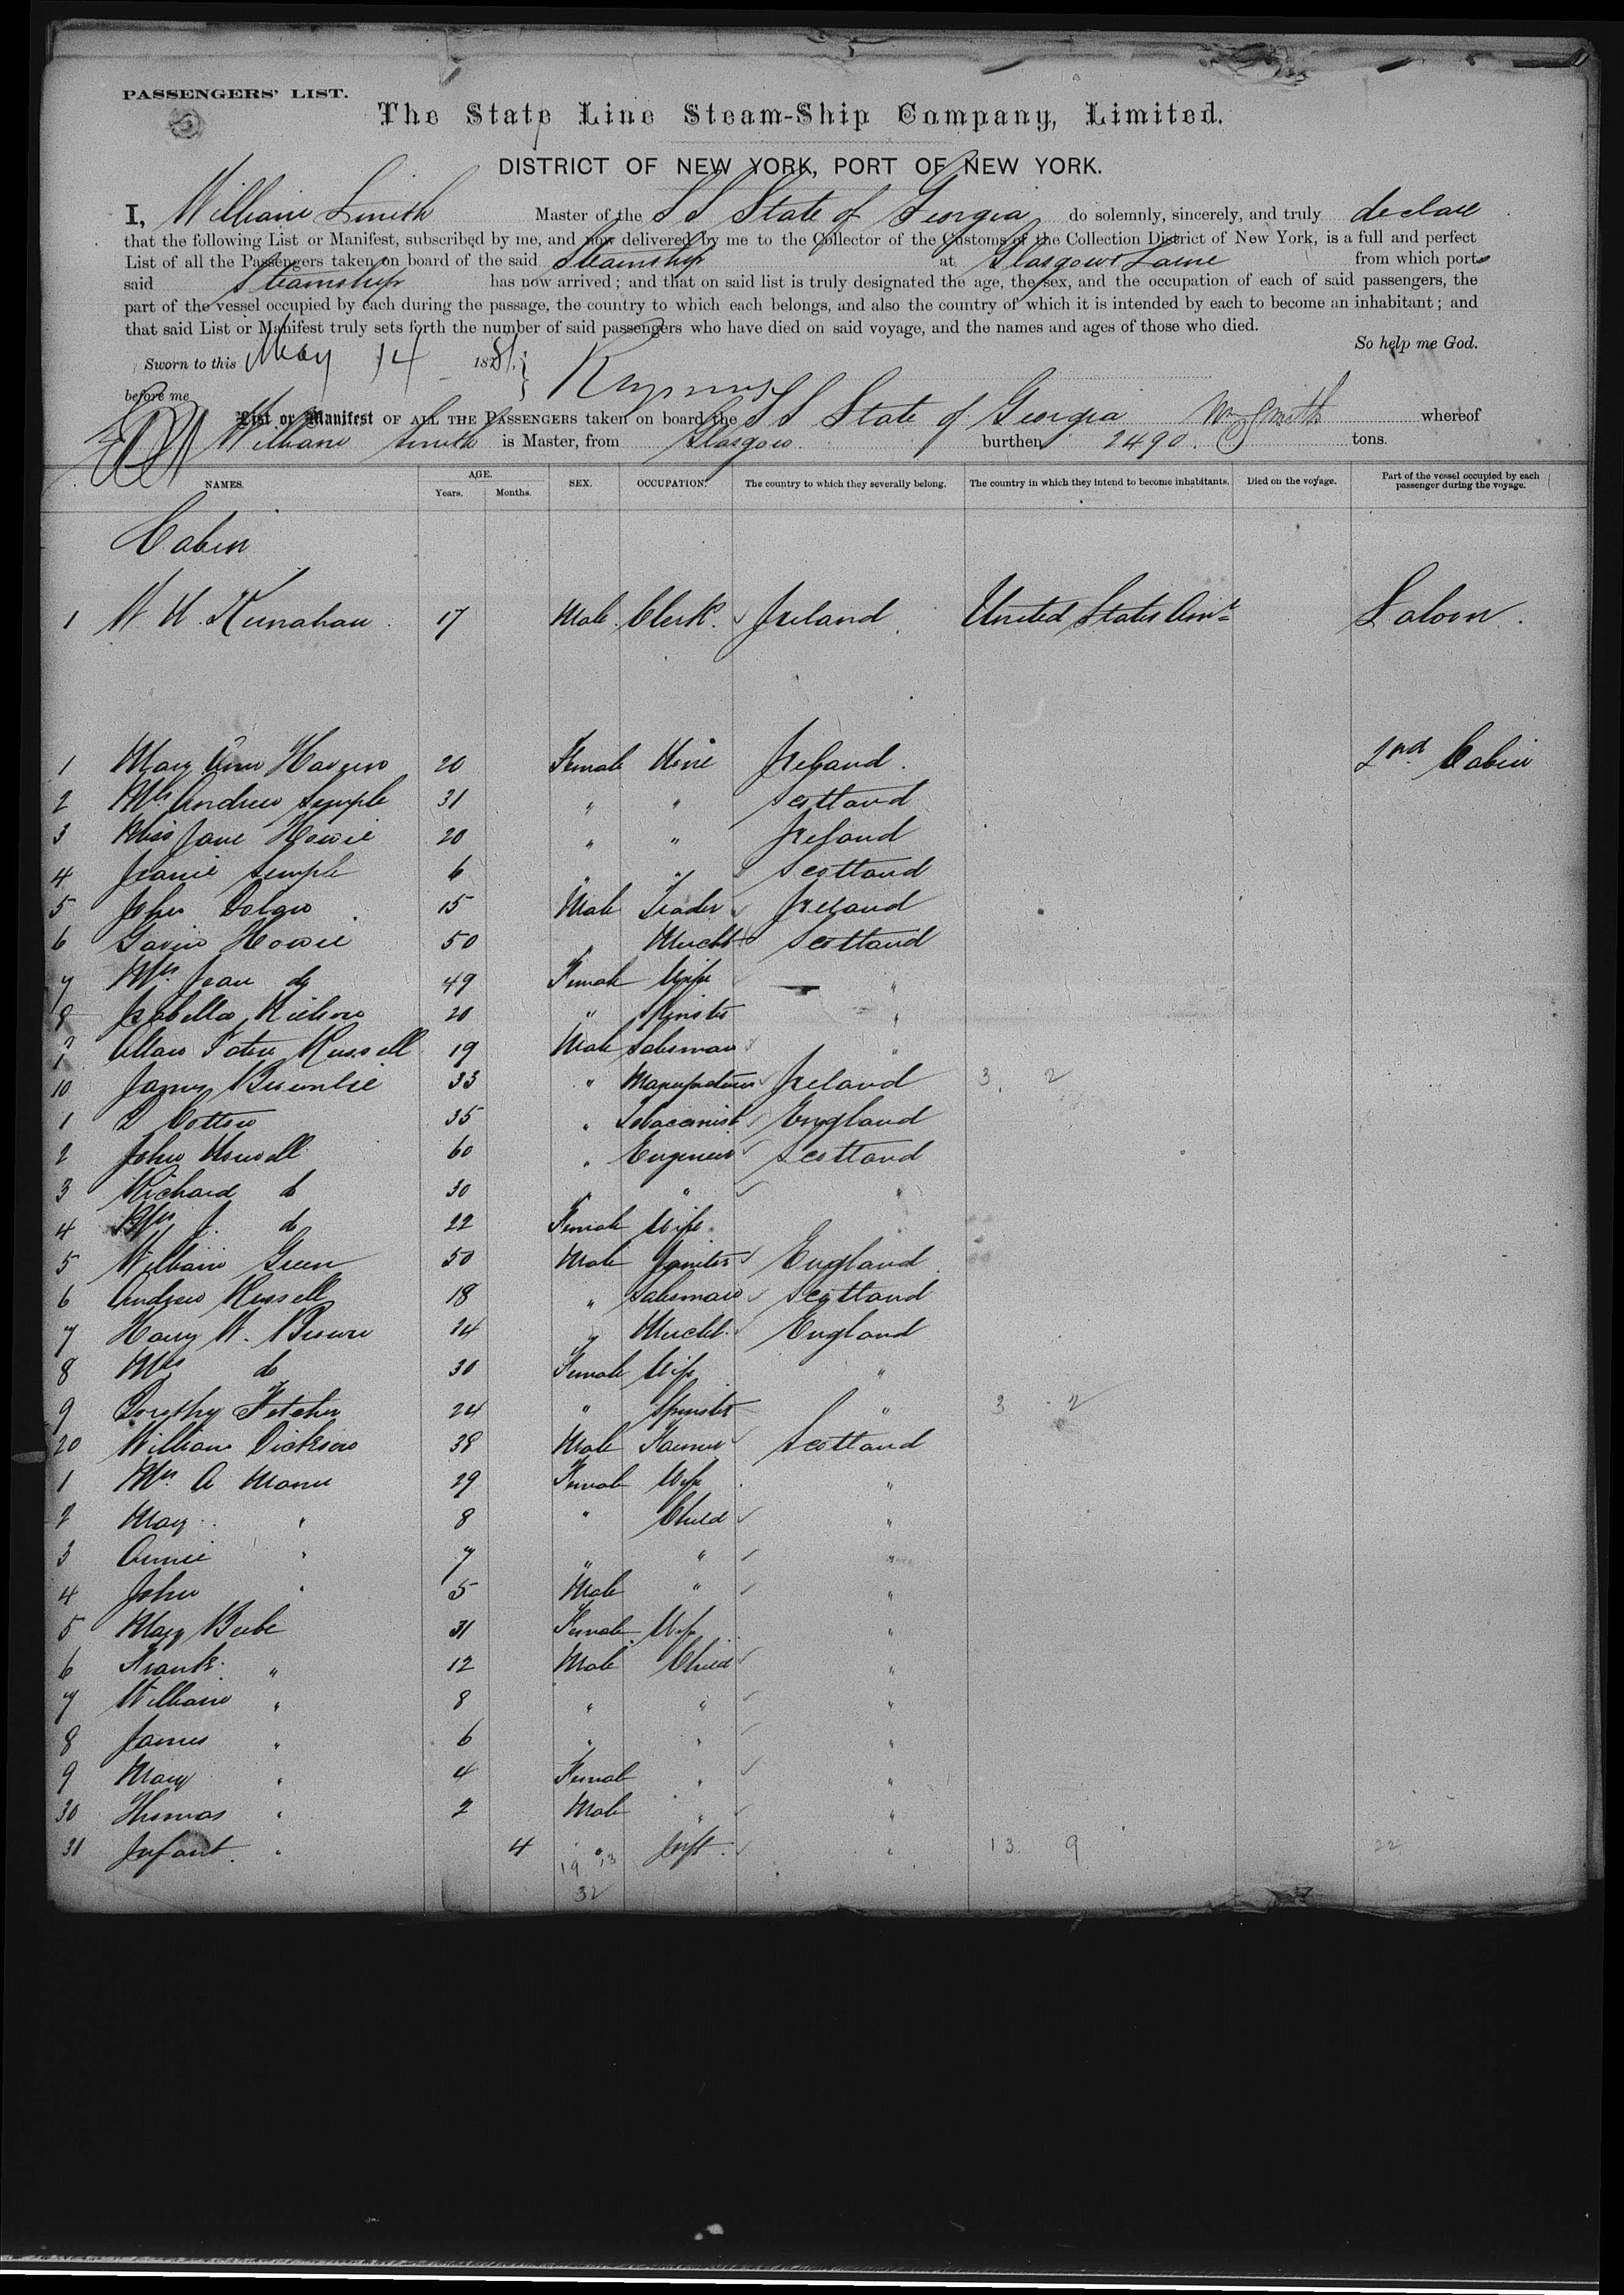 PASSENGERS' LIST.
The State Line Steam-Ship Company, Limited.
DISTRICT OF NEW YORK, PORT OF NEW YORK.
I, William Smith Master of the SS State of Georgia do solemnly, sincerely, and truly declare
that the following List or Manifest, subscribed by me, and now delivered by me to the Collector of the Customs of the Collection District of New York, is a full and perfect
List of all the Passengers taken on board of the said Steamship at Glasgow & Larne from which ports
said Steamship has now arrived; and that on said list is truly designated the age, the sex, and the occupation of each of said passengers, the
part of the vessel occupied by each during the passage, the country to which each belongs, and also the country of which it is intended by each to become an inhabitant; and
that said List or Manifest truly sets forth the number of said passengers who have died on said voyage, and the names and ages of those who died.
So help me God.
Sworn to this May 14 1881.
before me
List or Manifest OF ALL THE PASSENGERS taken on board the SS State of Georgia Wm Smith whereof
William Smith is Master, from Glasgow burthen 2490. tons.
NAMES. AGE. Years. Months. SEX. OCCUPATION. The country to which they severally belong. The country in which they intend to become inhabitants. Died on the voyage. Part of the vessel occupied by each passenger during the voyage.
Cabin
1 W. H. Kinahan 17 Male Clerk. Ireland United States Ama Saloon.
1 Mary Ann 20 Female None Ireland. 2nd Cabin
2 Mrs Andrew Semple 31 " " Scotland
3 Miss Jane Howie 20 " " Ireland
4 Jeanie Semple 6 " " Scotland
5 John Dolan 15 Male Ireland
6 Gavin Howie 50 " Mercht Scotland
7 Mrs Jean do 49 Female Wife "
8 Isabella 20 " Spinster "
9 Allan Russell 19 Male Salesman "
10 James 33 " Manufacturer Ireland 3. 2
1 D Cotton 35 " Tobacconist England
2 John 60 " Engineer Scotland
3 Richard do 30 " " "
4 Mrs J. do 22 Female Wife. "
5 William Green 50 Male Janitor England
6 Andrew Russell 18 " Salesman Scotland
7 Harry W. Brown 24 " Mercht. England
8 Mrs do 30 Female Wife "
9 Dorothy Fletcher 24 " Spinster " 3 2
20 William Dickson 38 Male Farmer Scotland
1 Mrs A 29 Female Wife "
2 May " 8 " Child "
3 Annie " 7 " " "
4 John " 5 Male " "
5 Mary Beebe 31 Female Wife "
6 Frank " 12 Male Child "
7 William " 8 " " "
8 James " 6 " " "
9 Mary " 4 Female " "
30 Thomas " 2 Male " "
31 Infant " 4 " Inft. " 13. 9 22
19 13
32